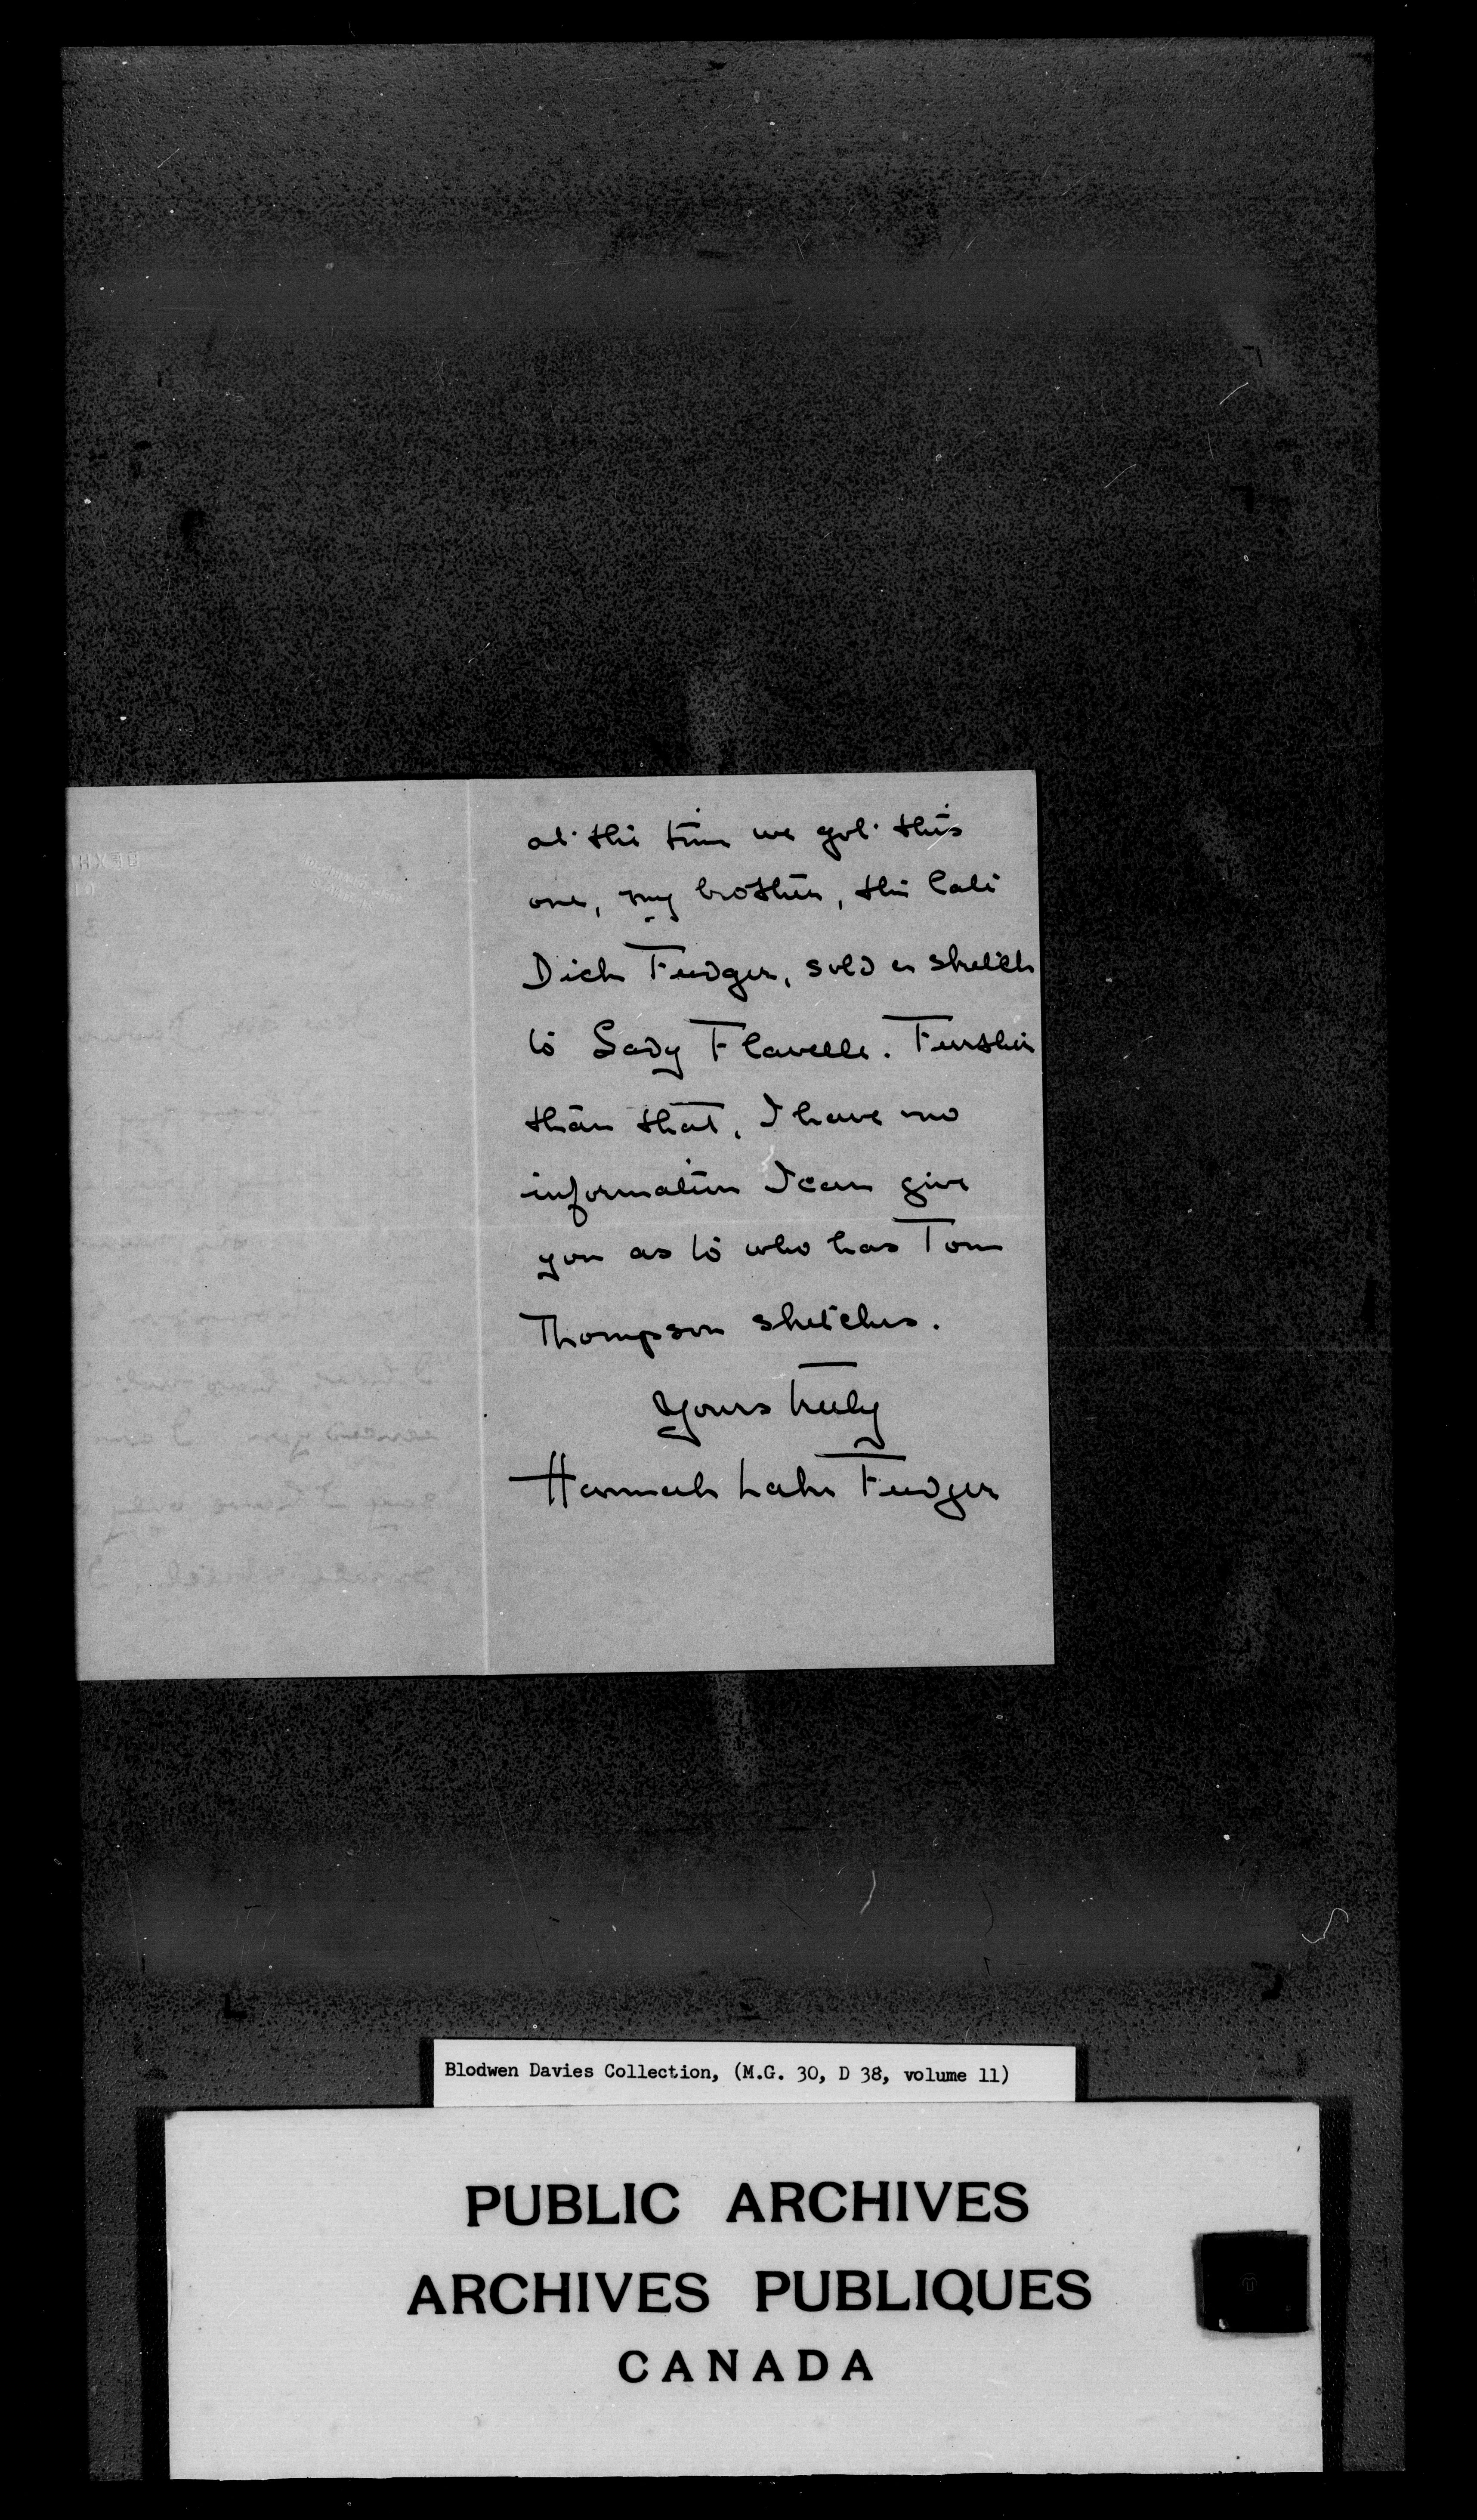 at the time we got this
one, my brother, the late
Dick Fudger, sold a sketch
to Lady Flavelle. Further
than that, I have no
information I can give
you as to who has Tom
Thompson sketches.
Yours truly
Hannah Fudger
Blodwen Davies Collection, (M.G. 30, D 38, volume 11)
PUBLIC ARCHIVES
ARCHIVES PUBLIQUES
CANADA